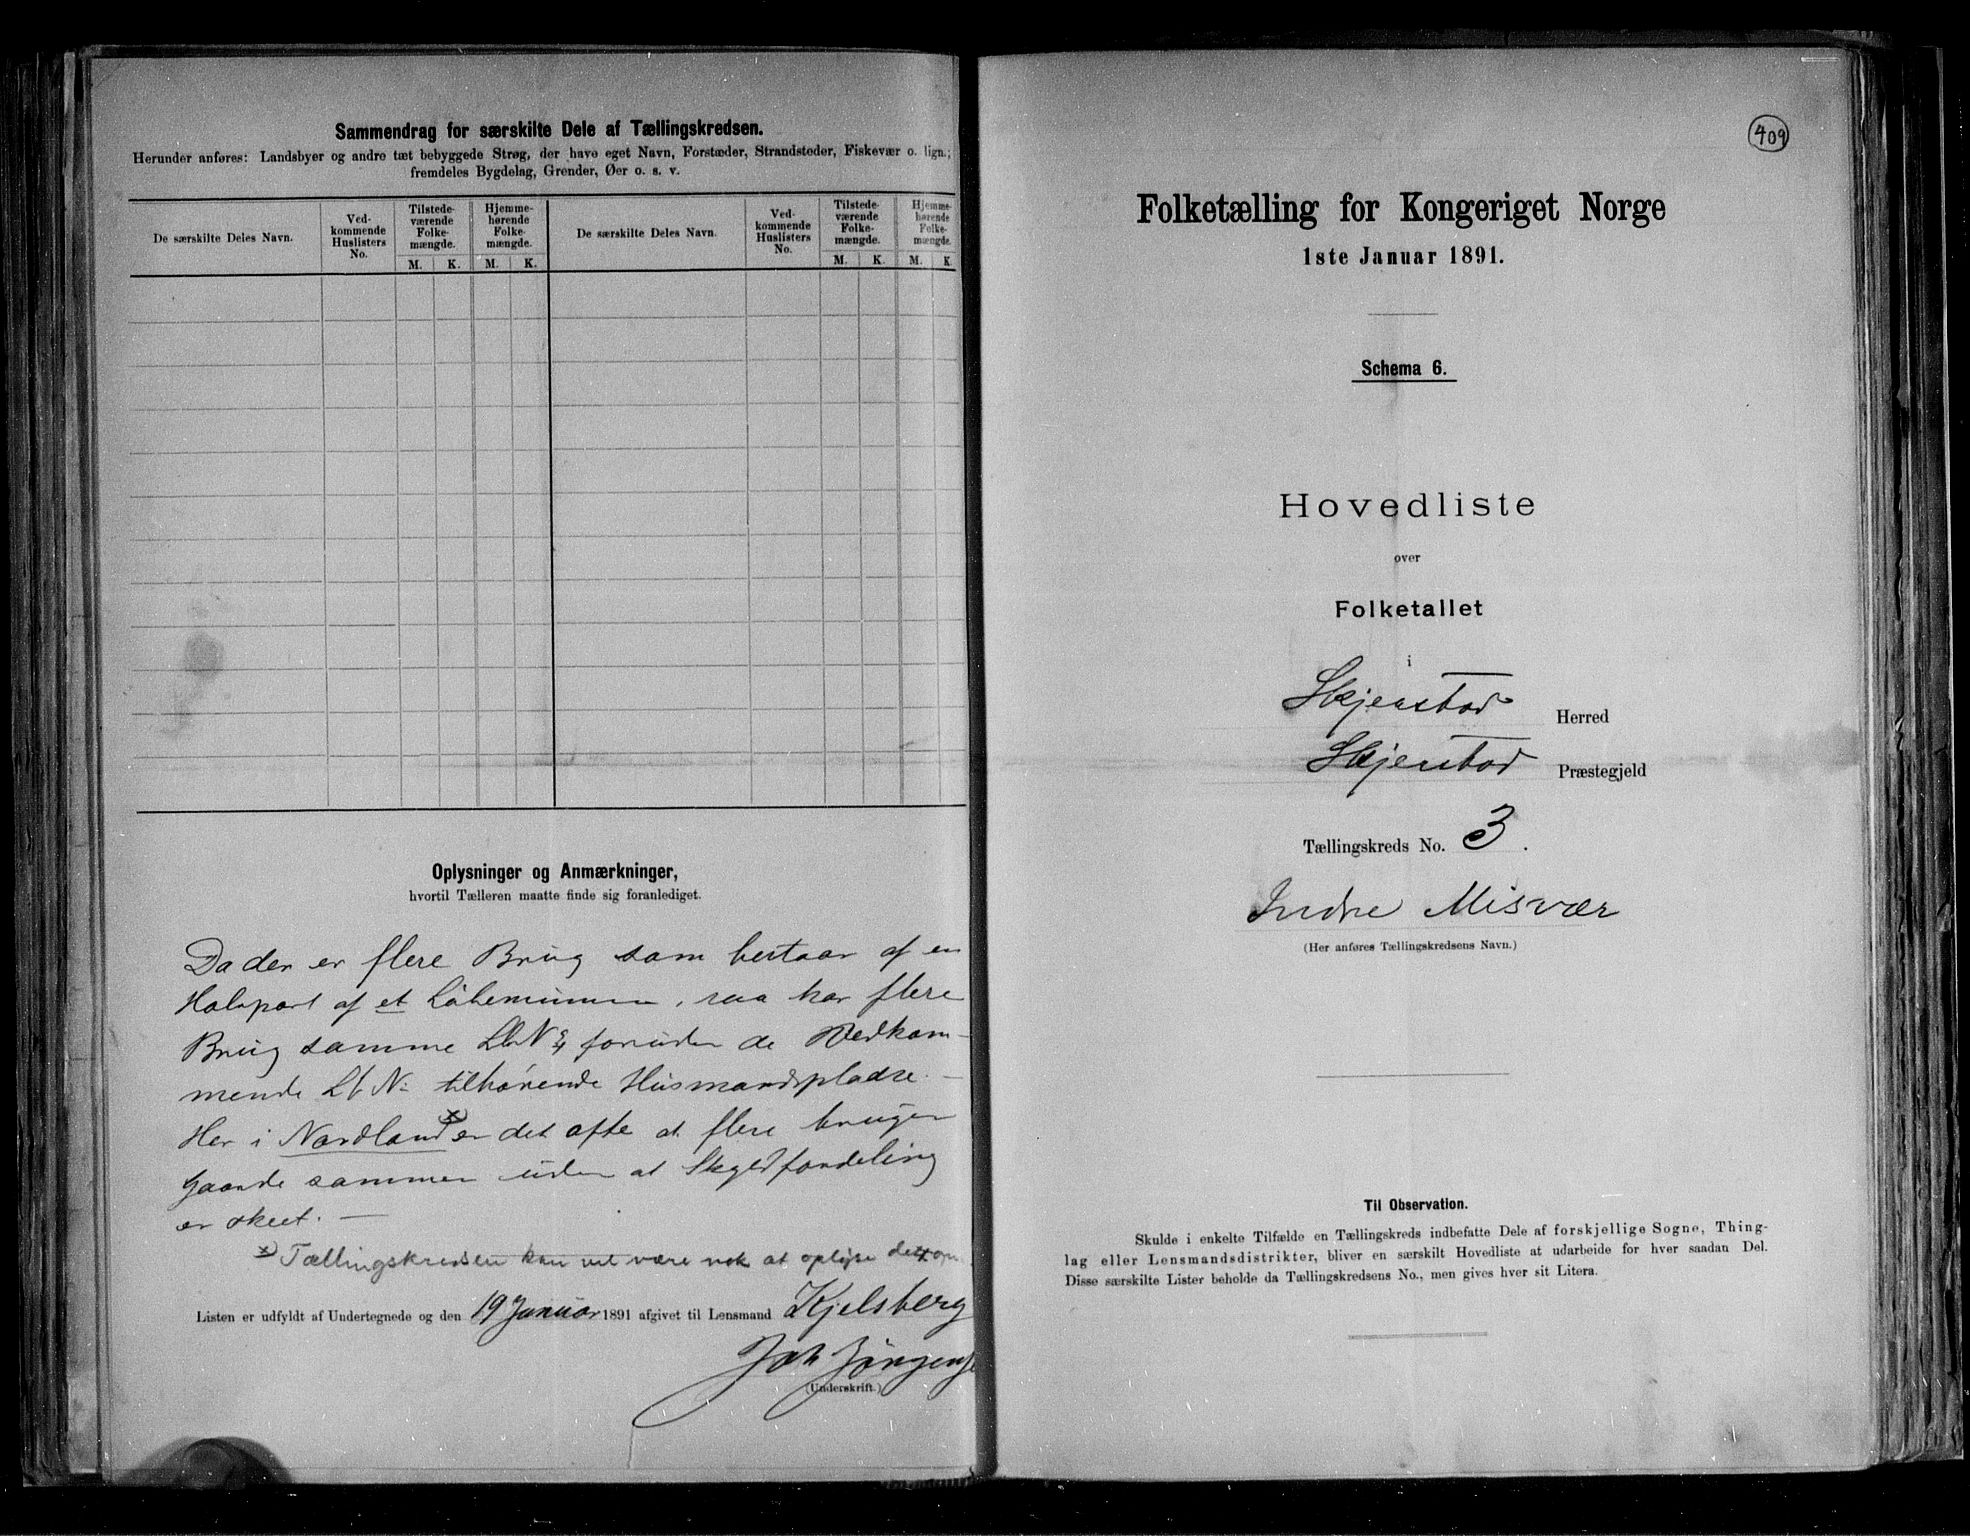 Sammendrag for særskilte Dele af Tællingskredsen.
Herunder anføres: Landsbyer og andre tæt bebyggede Strøg, der have eget Navn, Forstæder, Strandsteder, Fiskevær o. lign.;
fremdeles Bygdelag, Grender, Øer o. s. v.
De særskilte Deles Navn.
Ved-
kommende
Huslisters
No.
Tilstede-
værende
Folke-
mængde.
Hjemme-
hørende
Folke-
mængde.
M. K. M. K.
De særskilte Deles Navn.
Ved-
kommende
Huslisters
No.
Tilstede-
værende
Folke-
mængde.
Hjemme-
hørende
Folke-
mængde.
M. K. M. K
Oplysninger og Anmærkninger,
hvortil Tælleren maatte finde sig foranlediget.
Da der er flere Brug som bestaar af en
Halvpart af et Løbenummer, saa har flere
Brug samme LbN foruden de Vedkom-
mende LbN tilhørende Husmandspladse. —
Her i Nordland x) er det ofte at flere bruger
Gaarde sammen uden at Skyldfordeling
er skeet. —
x) Tællingskredsen kan vel være nok at oplyse
Listen er udfyldt af Undertegnede og den 19 Januar 1891 afgivet til Lensmand Kjelsberg
Joh Jörgense
(Underskrift.)
409
Folketælling for Kongeriget Norge
1ste Januar 1891.
Schema 6.
Hovedliste
over
Folketallet
i
Skjerstad Herred
Skjerstad Præstegjeld
Tællingskreds No. 3.
Indre Misvær
(Her anføres Tællingskredsens Navn.)
Til Observation.
Skulde i enkelte Tilfælde en Tællingskreds indbefatte Dele af forskjellige Sogne, Thing-
lag eller Lensmandsdistrikter, bliver en særskilt Hovedliste at udarbeide for hver saadan Del.
Disse særskilte Lister beholde da Tællingskredsens No., men gives hver sit Litera.